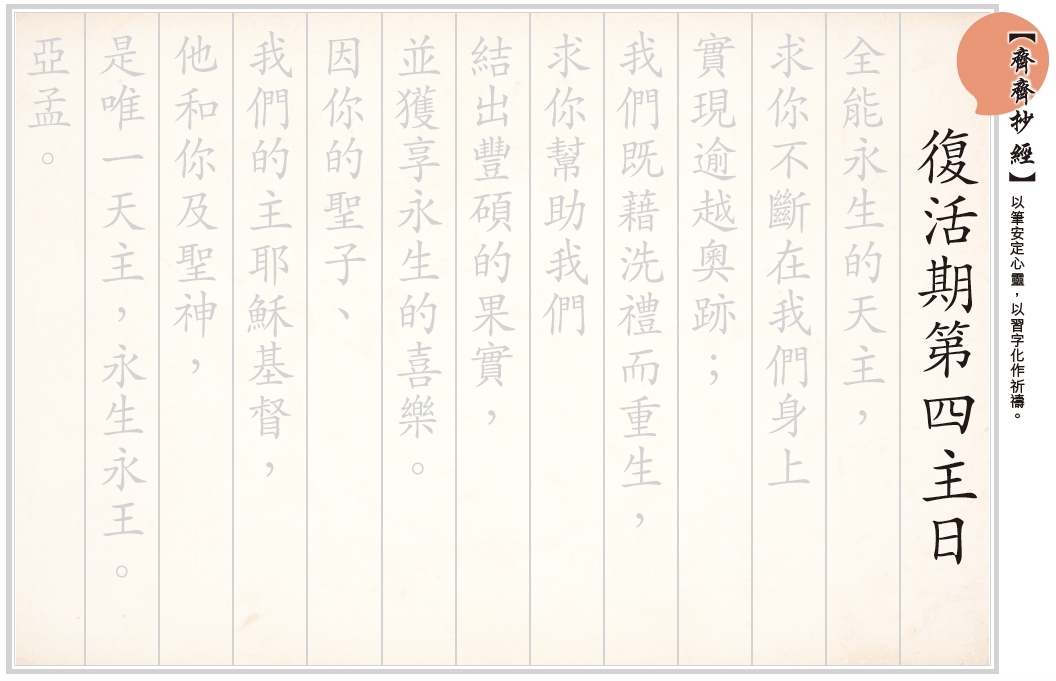 【齊齊抄經】
以筆安定心靈，以習字化作祈禱。
復活期第四主日
全能永生的天主，
求你不斷在我們身上
實現逾越奧跡；
我們既藉洗禮而重生，
求你幫助我們
結出豐碩的果實，
並獲享永生的喜樂。
因你的聖子、
我們的主耶穌基督，
他和你及聖神，
是唯一天主，永生永王。
亞孟。